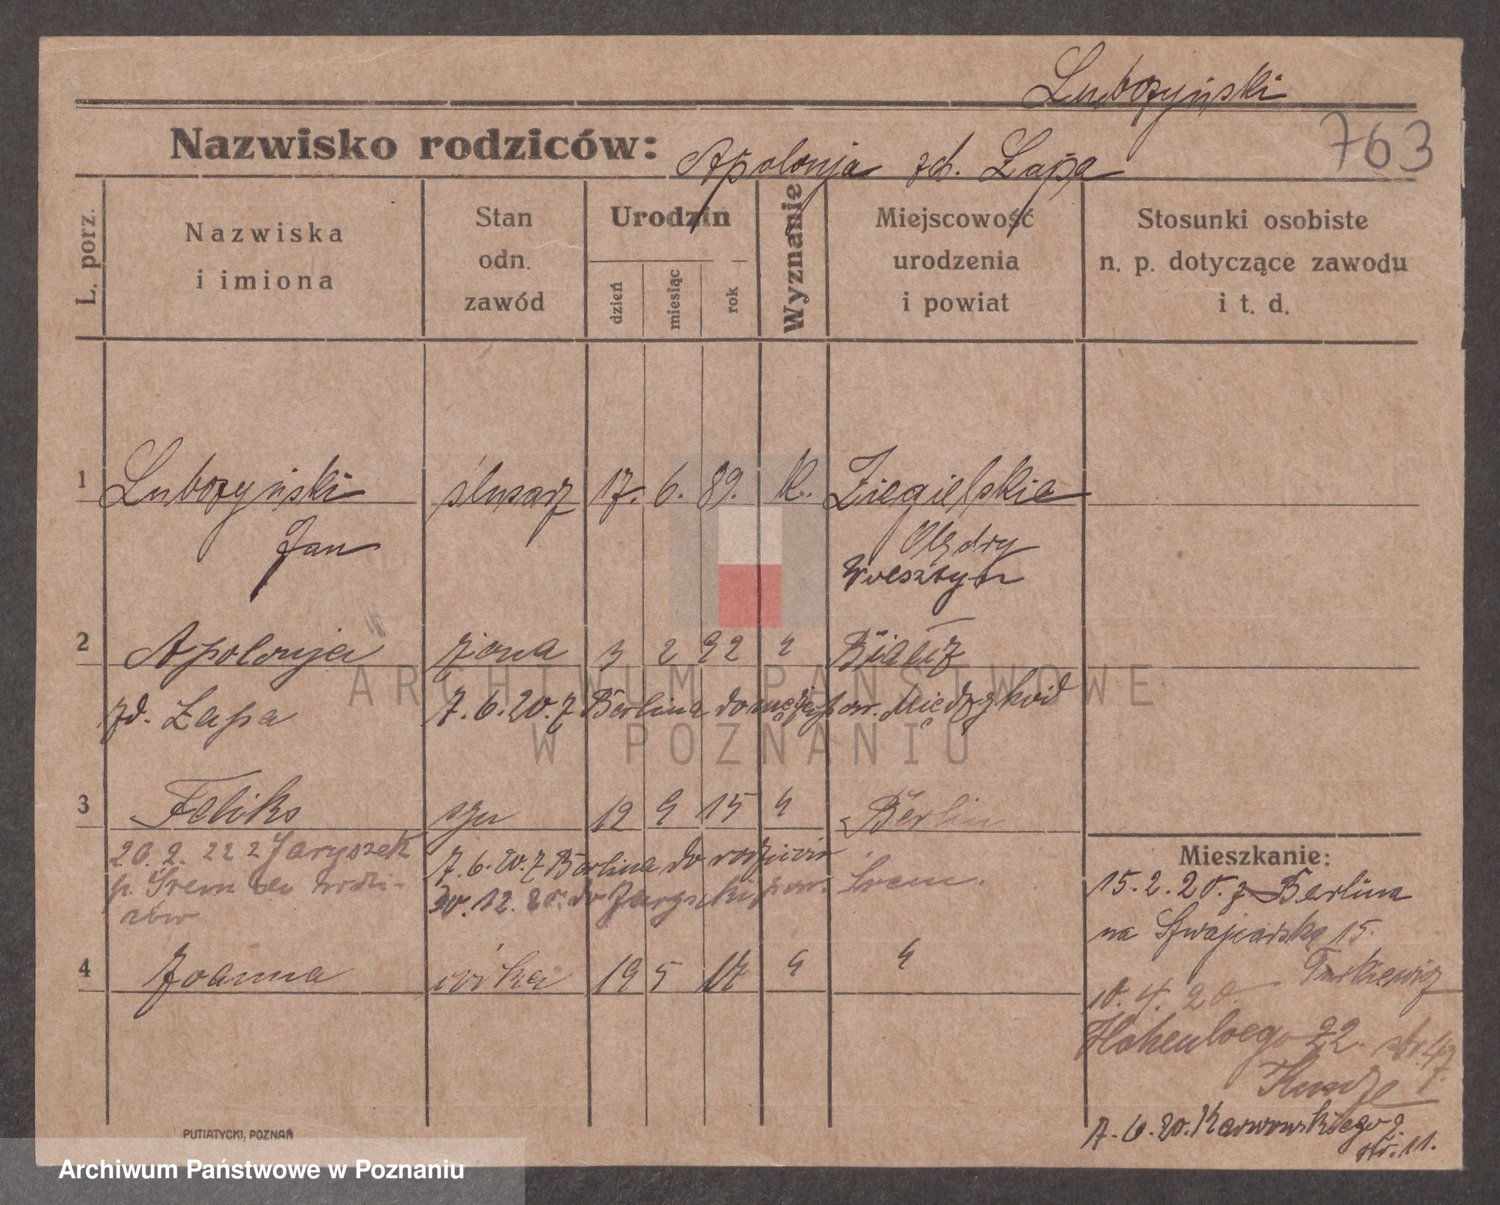 Luboszyński
763
Nazwisko rodziców: Apolonja zd. Łapa
L. porz.
Nazwiska
i imiona
Stan
odn.
zawód
Urodzin
dzień
miesiąc
rok
Wyznanie
Miejscowość
urodzenia
i powiat
Stosunki osobiste
n. p. dotyczące zawodu
i t. d.
1 ślusarz 17. 6. 89. K. Ziegielskie
Jan Olędry
Wolsztyn
2 Apolonja żona 3 2 92 " Białcz
zd. Łapa 7. 6. 20. z Berlina do męża pow. Międzychód
3 Feliks syn 12 9 15 " Berlin
20. 2. 22 z Jaryszek
p. Śrem do rodzi-
ców
7. 6. 20. z Berlina do rodziców
30. 12. 20. do pow. Śrem.
4 Joanna córka 19 5 17 " "
Mieszkanie:
15. 2. 20. z Berlina
na Szwajcarską 15.
10. 4. 20.
Hohenloego 22.
7. 6. 20. Karwowskiego 2.
str. 11.
PUTIATYCKI, POZNAŃ
ARCHIWUM PAŃSTWOWE
W POZNANIU
Archiwum Państwowe w Poznaniu